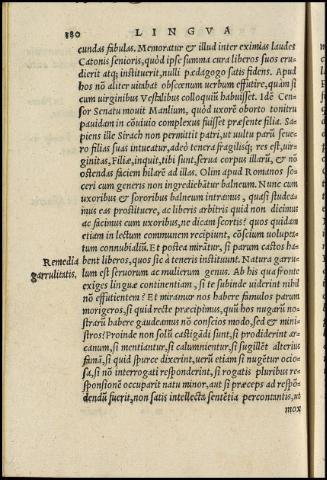 880 LINGVA
cundas fabulas. Memoratur & illud inter eximias laudes
Catonis senioris, quòd ipse summa cura liberos suos eru-
dierit atq; instituerit, nulli pædagogo satis fidens. Apud
hos nõ aliter uitabat obscenum uerbum effutire, quàm si
cum uirginibus Vestalibus colloquiũ habuisset. Idẽ Cen-
sor Senatu mouit Manlium, quòd uxorẽ oborto tonitru
pauidam in cõuiuio complexus fuisset præsente filia. Sa-
piens ille Sirach non permittit patri, ut uultu parũ seue-
ro filias suas intueatur, adeò tenera fragilisq; res est, uir-
ginitas, Filiæ, inquit, tibi sunt, serua corpus illarũ, & nõ
ostendas faciem hilarẽ ad illas. Olim apud Romanos so-
ceri cum generis non ingrediebãtur balneum. Nunc cum
uxoribus & sororibus balneum intramus, quasi studea-
mus eas prostituere, ac liberis arbitris quid non dicimus
ac facimus cum uxoribus, ne dicam scortis? quos quidam
etiam in lectum communem recipiunt, cõscium uolupta-
tum connubialiũ. Et postea mirãtur, si parum castos ha-
Remedia bent liberos, quos sic à teneris instituunt. Natura garru-
garrulitatis. lum est seruorum ac mulierum genus. Ab his qua fronte
exiges linguæ continentiam, si te subinde uiderint nihil
nõ effutientem? Et miramur nos habere famulos parum
morigeros, si quid rectè præcipimus, quũ hos nugarũ no-
strarũ habere gaudeamus nõ conscios modo, sed & mini-
stros? Proinde non solũ castigãdi sunt, si prodiderint ar-
canum, si mentiantur, si calumnientur, si sugillẽt alterius
famã, si quid spurcè dixerint, uerũ etiam si nugẽtur ocio-
sa, si nõ interrogati respõderint, si rogatis pluribus re-
sponsionẽ occuparit natu minor, aut si præceps ad respõ-
dendũ fuerit, non satis intellecta sentẽtia percontantis, ut
mox